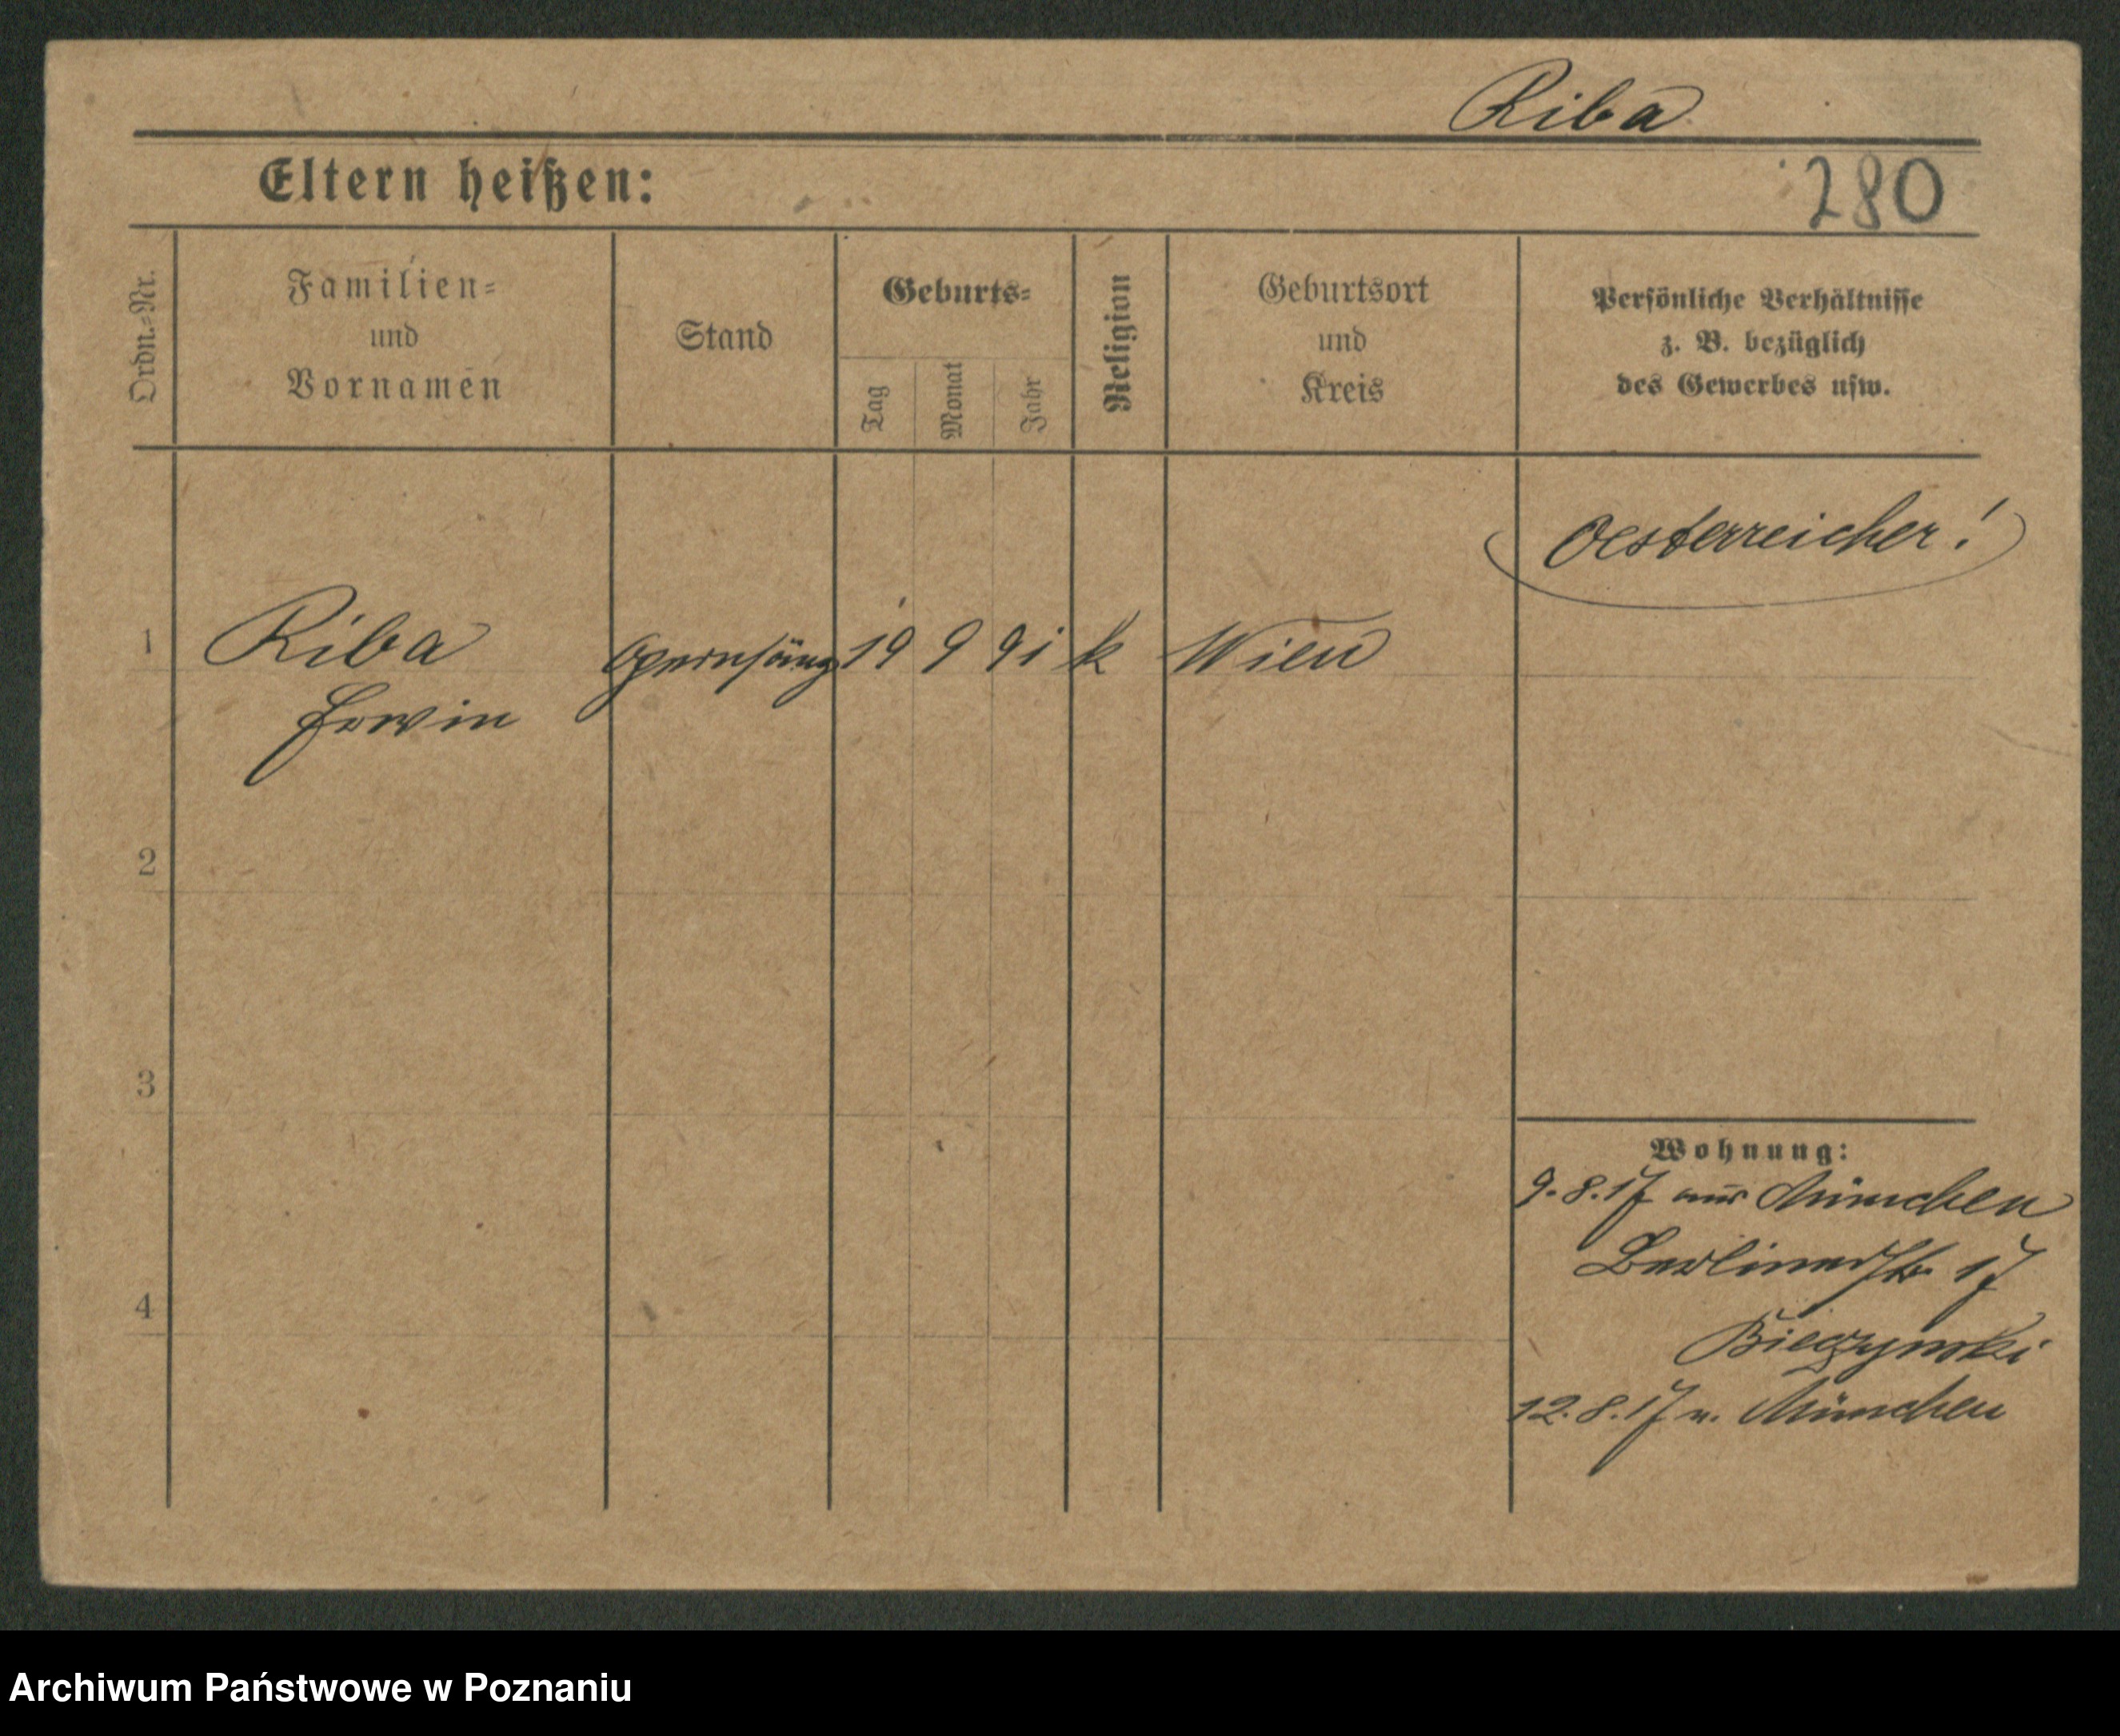 Riba
Eltern heißen:
280
Ordn.=Nr.
Familien=
und
Vornamen
Stand
Geburts=
Tag
Monat
Jahr
Religion
Geburtsort
und
Kreis
Persönliche Verhältnisse
z. B. bezüglich
des Gewerbes usw.
Oesterreicher!
1 Riba Opernsäng 19 9 91 k Wien
Erwin
2
3
4
Wohnung:
9.8.17 aus München
Berlinerstr 17
Bieczynski
12.8.17 n. München
Archiwum Państwowe w Poznaniu